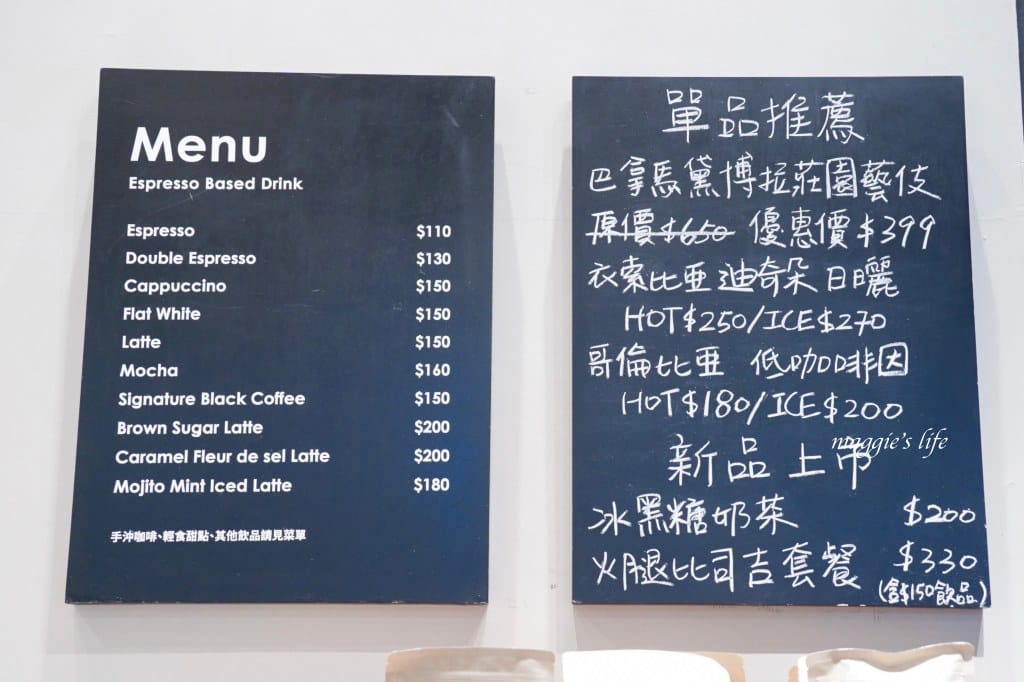 Menu
Espresso Based Drink
Espresso $110
Double Espresso $130
Cappuccino $150
Flat White $150
Latte $150
Mocha $160
Signature Black Coffee $150
Brown Sugar Latte $200
Caramel Fleur de sel Latte $200
Mojito Mint Iced Latte $180
手沖咖啡、輕食甜點、其他飲品請見菜單
單品推薦
巴拿馬黛博拉莊園藝伎
原價$650 優惠價$399
衣索比亞迪奇朵 日曬
HOT$250/ICE$270
哥倫比亞 低咖啡因
HOT$180/ICE$200
maggie's life
新品上市
冰黑糖奶茶 $200
火腿比司吉套餐 $330
(含$150飲品)